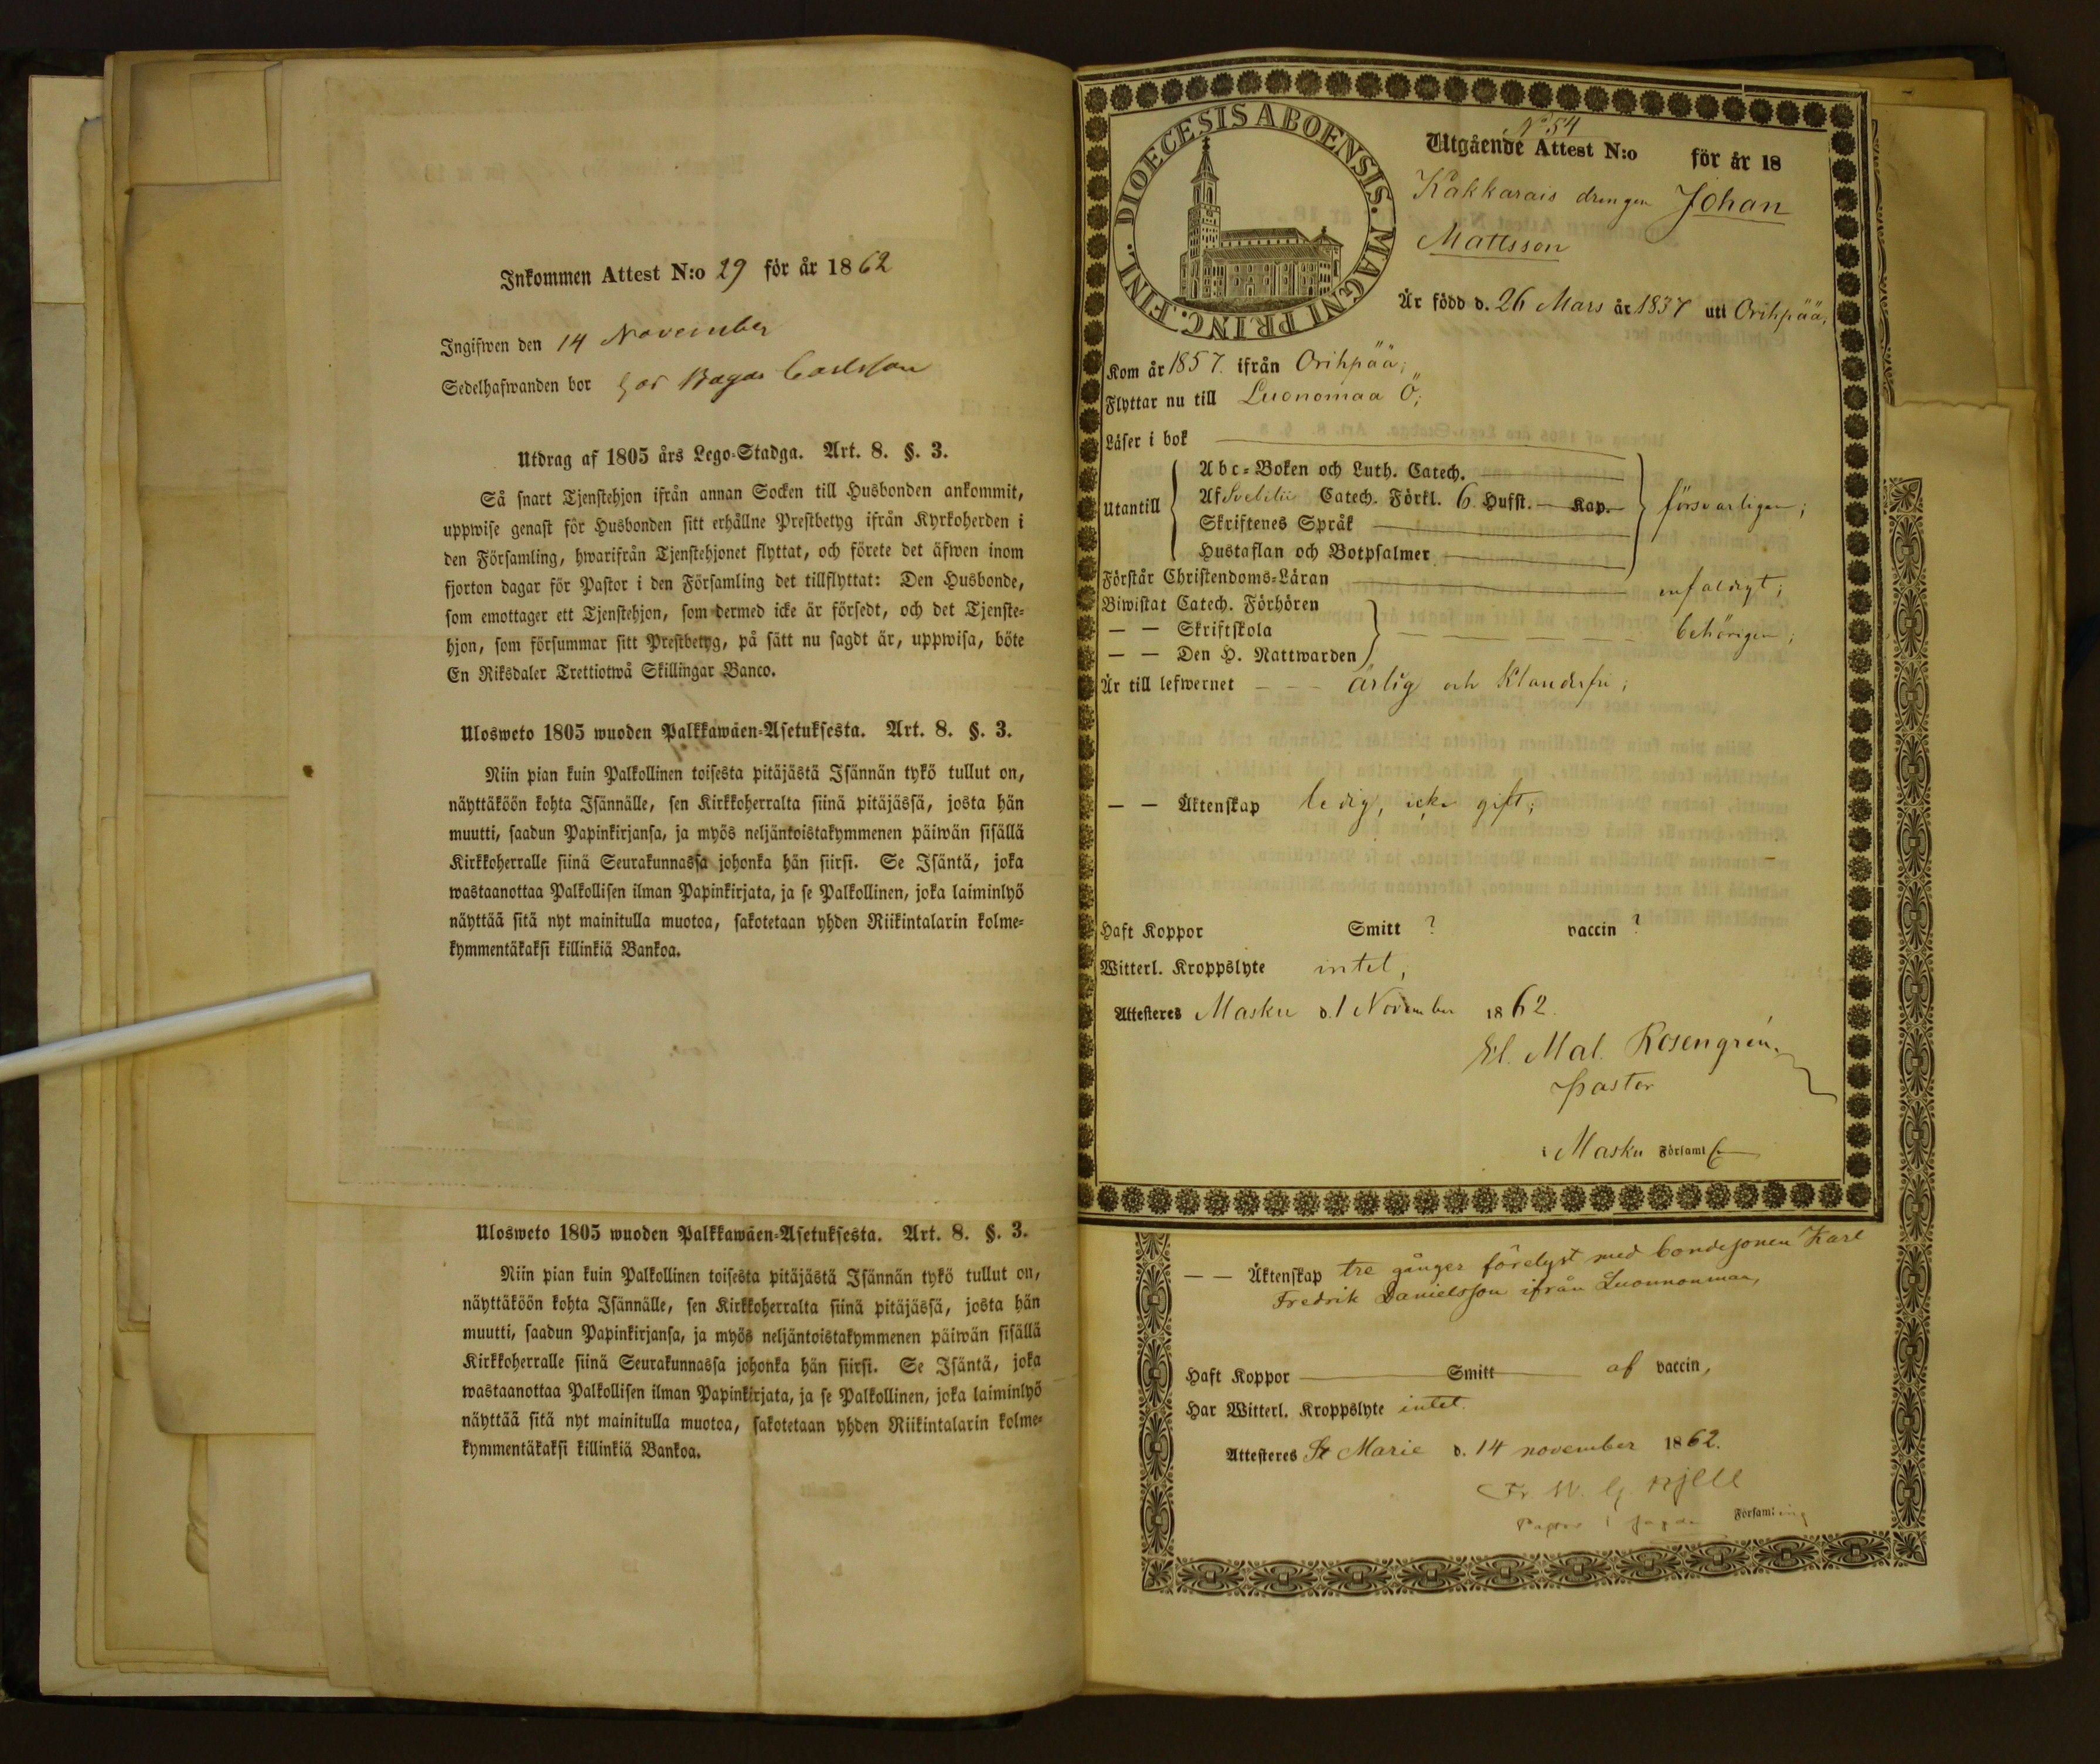 Inkommen Attest N:o 29 för år 1862
Ingifwen den 14 November
Sedelhafwanden bor hos Bagas Carlsson
Utdrag af 1805 års Lego-Stadga. Art. 8. §. 3.
Så snart Tjenstehjon ifrån annan Socken till Husbonden ankommit,
uppwise genast för Husbonden sitt erhållne Prestbetyg ifrån Kyrkoherden i
den Församling, hwarifrån Tjenstehjonet flyttat, och förete det äfwen inom
fjorton dagar för Pastor i den Församling det tillflyttat: Den Husbonde,
som emottager ett Tjenstehjon, som dermed icke är försedt, och det Tjenste-
hjon, som försummar sitt Prestbetyg, på sätt nu sagdt är, uppwisa, böte
En Riksdaler Trettiotwå Skillingar Banco.
Ulosweto 1805 wuoden Palkkawäen-Asetuksesta. Art. 8. §. 3.
Niin pian kuin Palkollinen toisesta pitäjästä Isännän tykö tullut on,
näyttäköön kohta Isännälle, sen Kirkkoherralta siinä pitäjässä, josta hän
muutti, saadun Papinkirjansa, ja myös neljäntoistakymmenen päiwän sisällä
Kirkkoherralle siinä Seurakunnassa johonka hän siirsi. Se Isäntä, joka
wastaanottaa Palkollisen ilman Papinkirjata, ja se Palkollinen, joka laiminlyö
näyttää sitä nyt mainitulla muotoa, sakotetaan yhden Riikintalarin kolme-
kymmentäkaksi killinkiä Bankoa.
Ulosweto 1805 wuoden Palkkawäen-Asetuksesta. Art. 8. §. 3.
Niin pian kuin Palkollinen toisesta pitäjästä Isännän tykö tullut on,
näyttäköön kohta Isännälle, sen Kirkkoherralta siinä pitäjässä, josta hän
muutti, saadun Papinkirjansa, ja myös neljäntoistakymmenen päiwän sisällä
Kirkkoherralle siinä Seurakunnassa johonka hän siirsi. Se Isäntä, joka
wastaanottaa Palkollisen ilman Papinkirjata, ja se Palkollinen, joka laiminlyö
näyttää sitä nyt mainitulla muotoa, sakotetaan yhden Riikintalarin kolme-
kymmentäkaksi killinkiä Bankoa.
DIOECESIS ABOENSIS. MAGNI PRINC. FINL.
No 54
Utgående Attest N:o för år 18
Kakkarais drengen Johan
Mattsson
Är född d. 26 Mars år 1837 uti Orihpää,
Kom år 1857. ifrån Orihpää;
Flyttar nu till Luonomaa Ö;
Läser i bok
Utantill
Abc-Boken och Luth. Catech.
Af Svebilii Catech. Förkl. 6. Hufst. Kap. försvarligen;
Skriftenes Språk
Hustaflan och Botpsalmer
Förstår Christendoms-Läran enfaldigt;
Biwistat Catech. Förhören
— — Skriftskola behörigen;
— — Den H. Nattwarden
Är till lefwernet — — ärlig och klanderfri;
— — Äktenskap ledig, icke gift;
Haft Koppor Smitt ? vaccin ?
Witterl. Kroppslyte intet,
Attesteres Masku d. 1 November 1862.
El. Mal. Rosengrén.
Pastor
i Masku Församl
— — Äktenskap tre gånger förelyst med bondesonen Karl
Fredrik Danielsson ifrån Luonnonmaa,
Haft Koppor Smitt af vaccin,
Har Witterl. Kroppslyte intet.
Attesteres St Marie d. 14 november 1862.
Fr. W. G. Hjelt
Pastor i sagda Församling